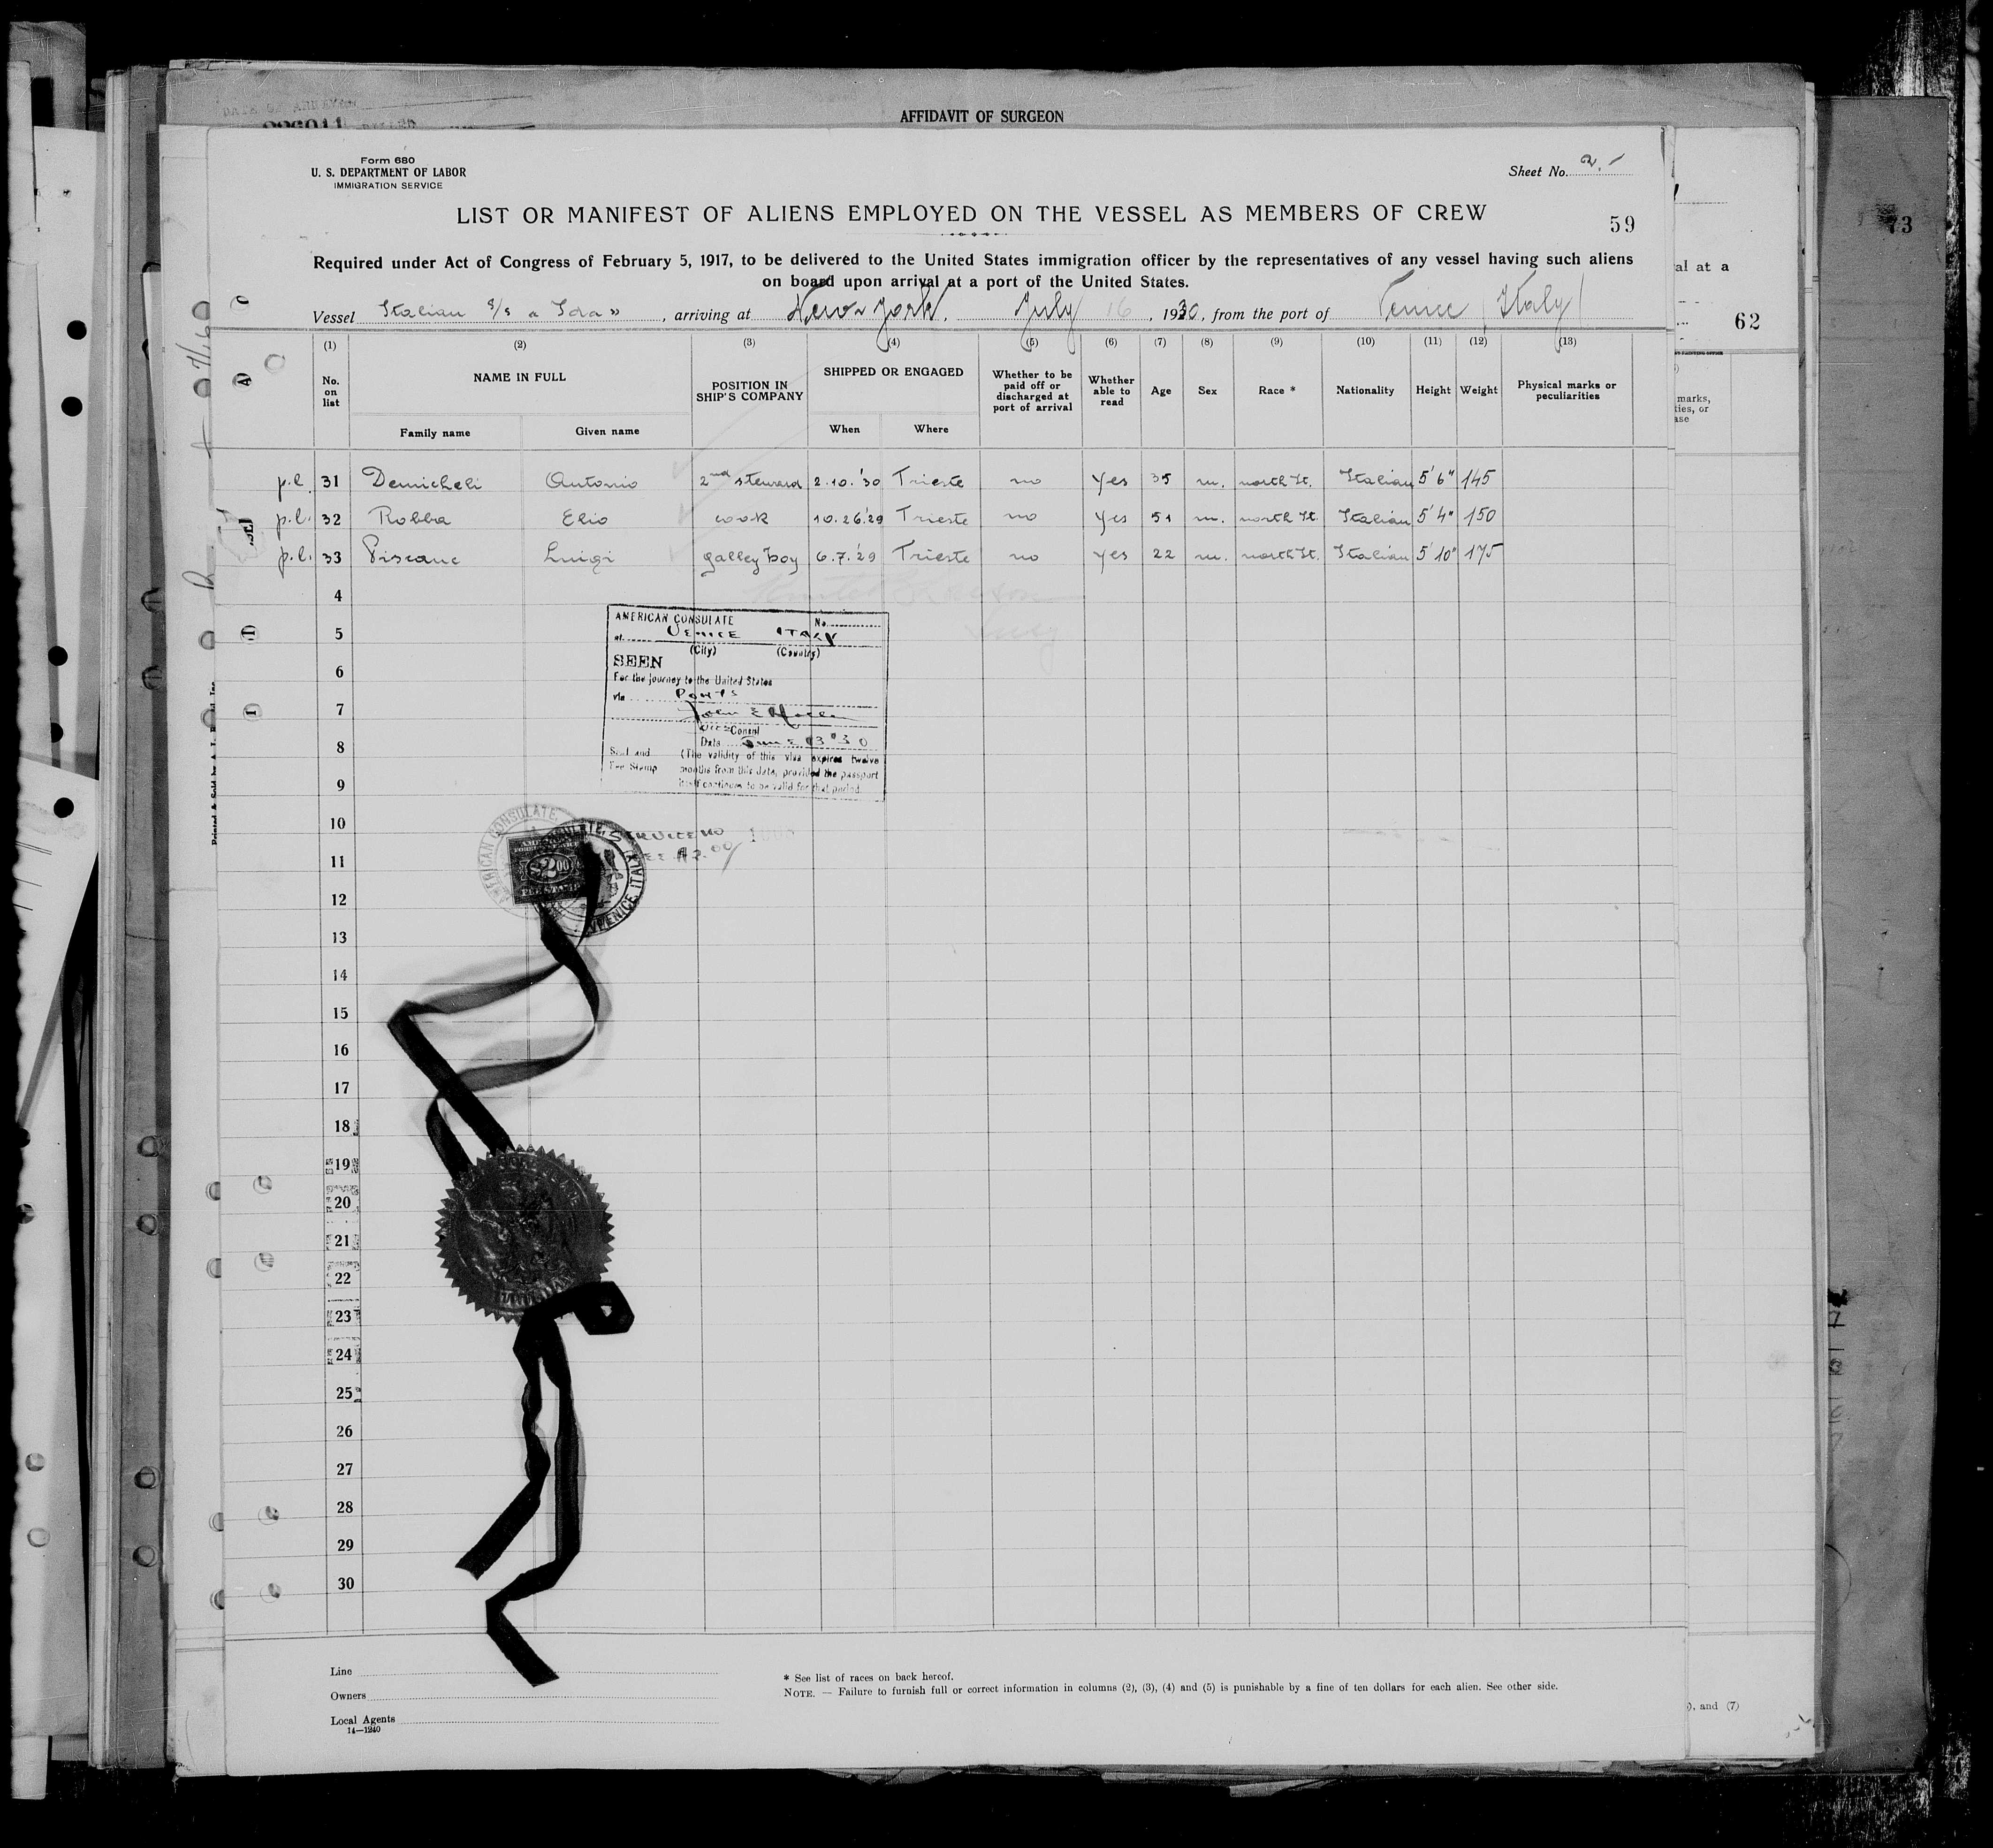 AFFIDAVIT OF SURGEON
Form 680
U. S. DEPARTMENT OF LABOR
IMMIGRATION SERVICE
Sheet No. 2.
LIST OR MANIFEST OF ALIENS EMPLOYED ON THE VESSEL AS MEMBERS OF CREW
59
Required under Act of Congress of February 5, 1917, to be delivered to the United States immigration officer by the representatives of any vessel having such aliens
on board upon arrival at a port of the United States.
Vessel Italian S/S "Ida", arriving at New York, July 16, 1930, from the port of Venice (Italy)
(1) (2) (3) (4) (5) (6) (7) (8) (9) (10) (11) (12) (13)
No. on list NAME IN FULL POSITION IN SHIP'S COMPANY SHIPPED OR ENGAGED Whether to be paid off or discharged at port of arrival Whether able to read Age Sex Race * Nationality Height Weight Physical marks or peculiarities
Family name Given name When Where
p.l. 31 Demicheli Antonio 2nd steward 2.10.'30 Trieste no Yes 35 m. north It. Italian 5'6" 145
p.l. 32 Robba Elio cook 10.26.'29 Trieste no Yes 51 m. north It. Italian 5'4" 150
p.l. 33 Piscanc Luigi galley boy 6.7.'29 Trieste no Yes 22 m. north It. Italian 5'10" 175
4
5
6
7
8
9
10
11
12
13
14
15
16
17
18
19
20
21
22
23
24
25
26
27
28
29
30
AMERICAN CONSULATE No.
at VENICE ITALY
(City) (Country)
SEEN
For the journey to the United States
via Ports
Vice Consul
Date June 13 '30
Seal and Fee Stamp
(The validity of this visa expires twelve
months from this date, provided the passport
itself continues to be valid for that period
AMERICAN CONSULATE, VENICE, ITALY
2.00
SERVICE NO
Line
Owners
Local Agents
14—1240
* See list of races on back hereof.
NOTE. — Failure to furnish full or correct information in columns (2), (3), (4) and (5) is punishable by a fine of ten dollars for each alien. See other side.
al at a
62
73
marks,
ties, or
ase
), and (7)